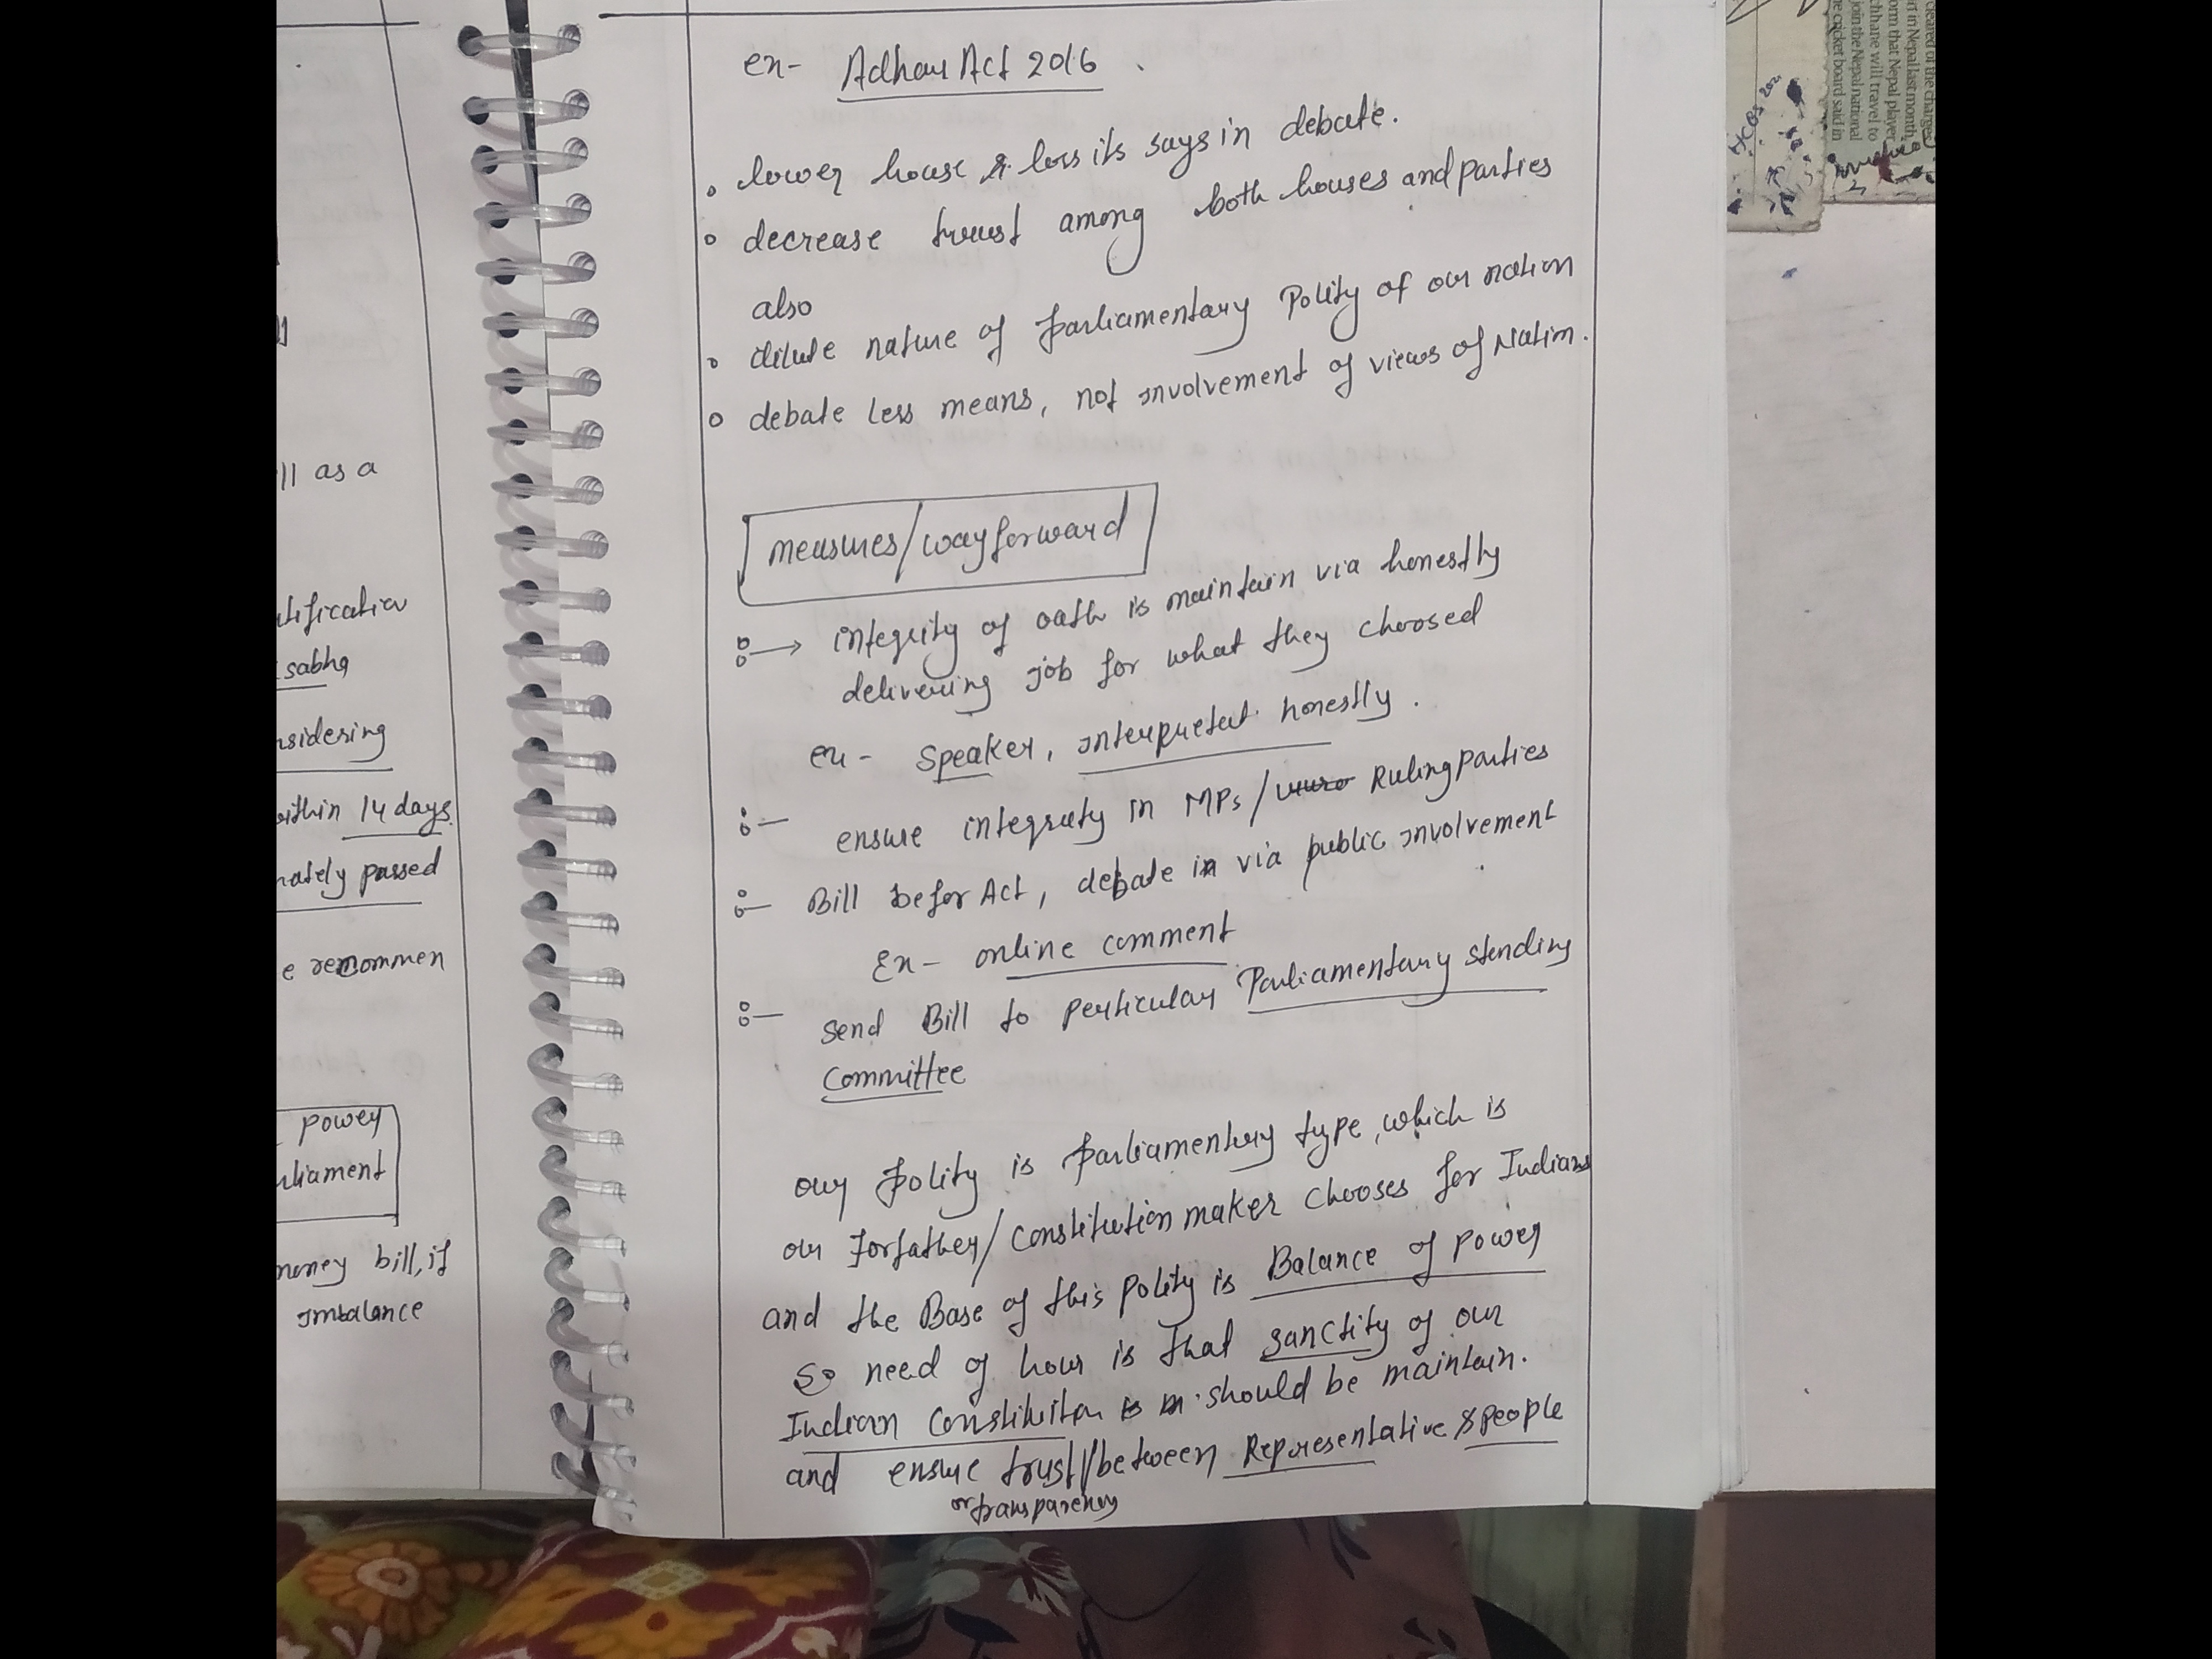 ll as a
sabha
nsidering
within 14 days
nately passed
e recommen
power
rliament
money bill, if
imbalance
ex- Adhar Act 2016
lower house & loss its says in debate.
decrease trust among both houses and parties
also
dilute nature of Parliamentary Polity of our nation
debate less means, not involvement of views of Nation.
measures/wayforward
→ integrity of oath is maintain via honestly
delivering job for what they choosed
ex- Speaker, interpretat honestly.
ensure integraty in MPs/ Ruling parties
Bill befor Act, debate in via public involvement
Ex- online comment
send Bill to perticular Parliamentary stending
Committee
our polity is parliamentary type, which is
our Forfather/constitution maker chooses for Indians
and the Base of this polity is Balance of power
So need of hour is that sanctity of our
Indian Constituiton should be maintain.
and ensure trust//between Representative & people
or transparency
cleared of the charges
rt in Nepal last month,
orm that Nepal player
chhane will travel to
join the Nepal national
e cricket board said in